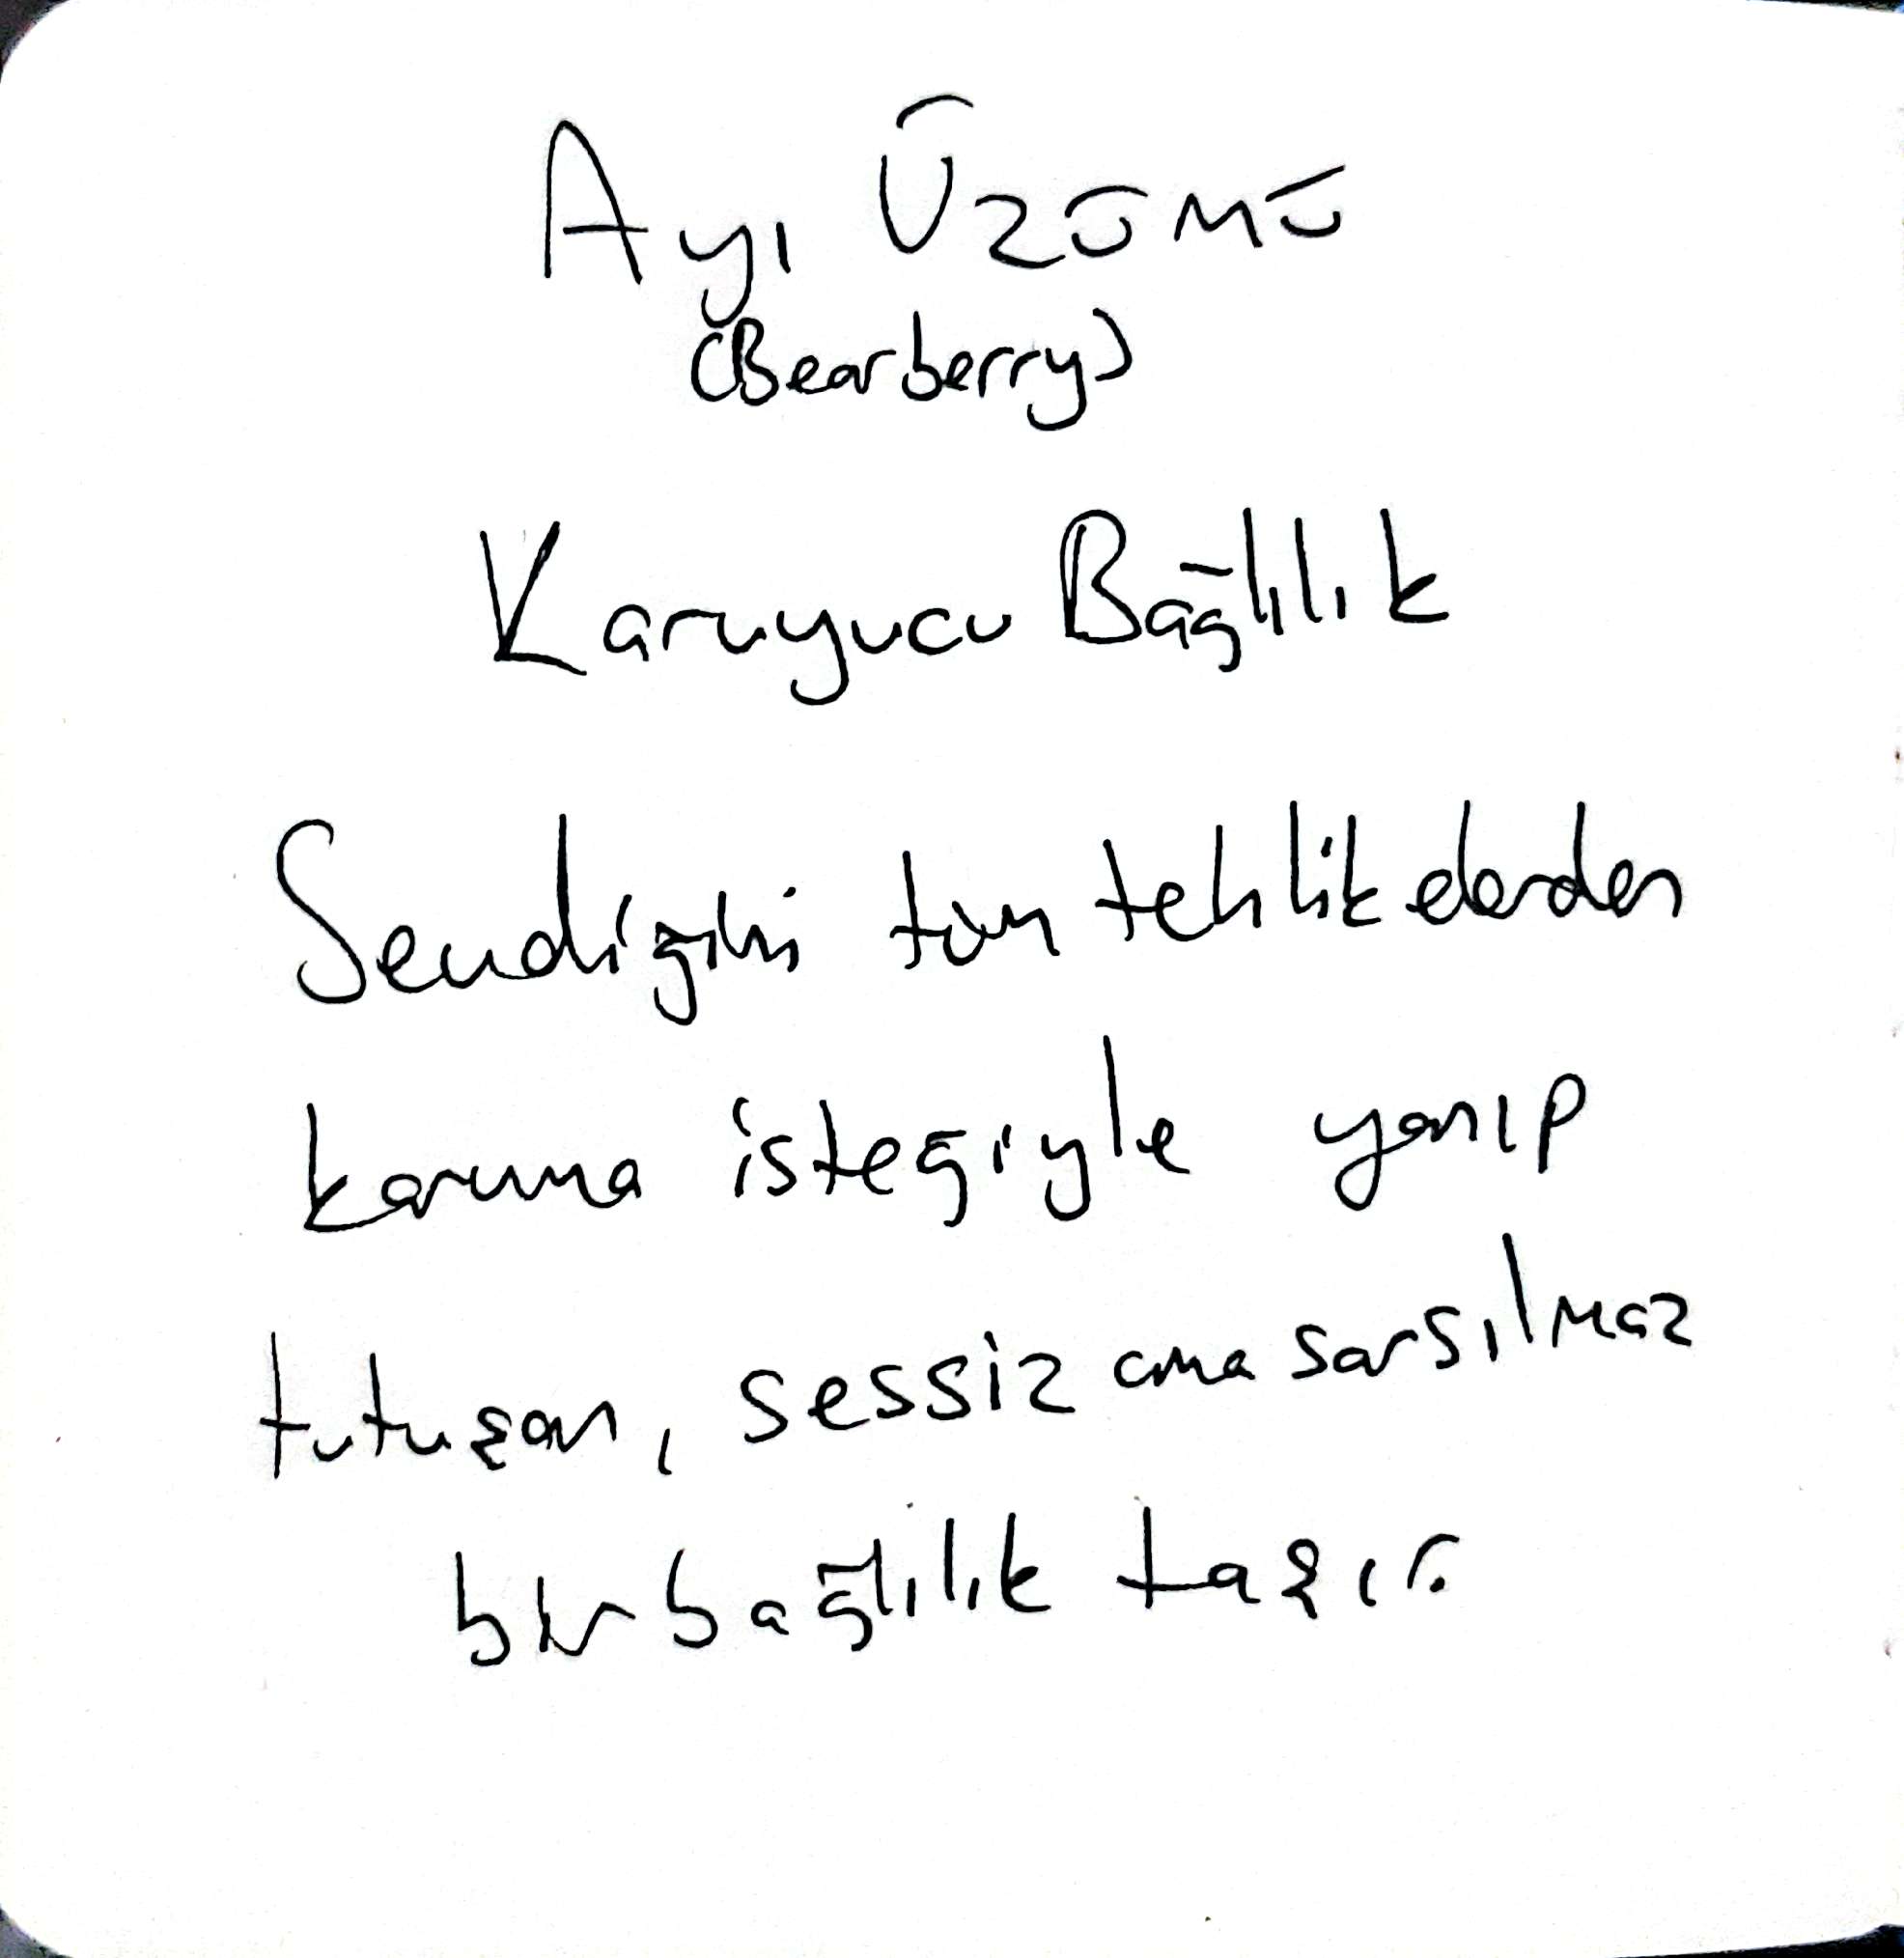 Ayı Üzümü
(Bearberry)
Karuyucu Bağlılık
Sevdiğini tüm tehlikelerden
koruma isteğiyle yanıp
tutuşan, sessiz ama sarsılmaz
bir bağlılık taşır.